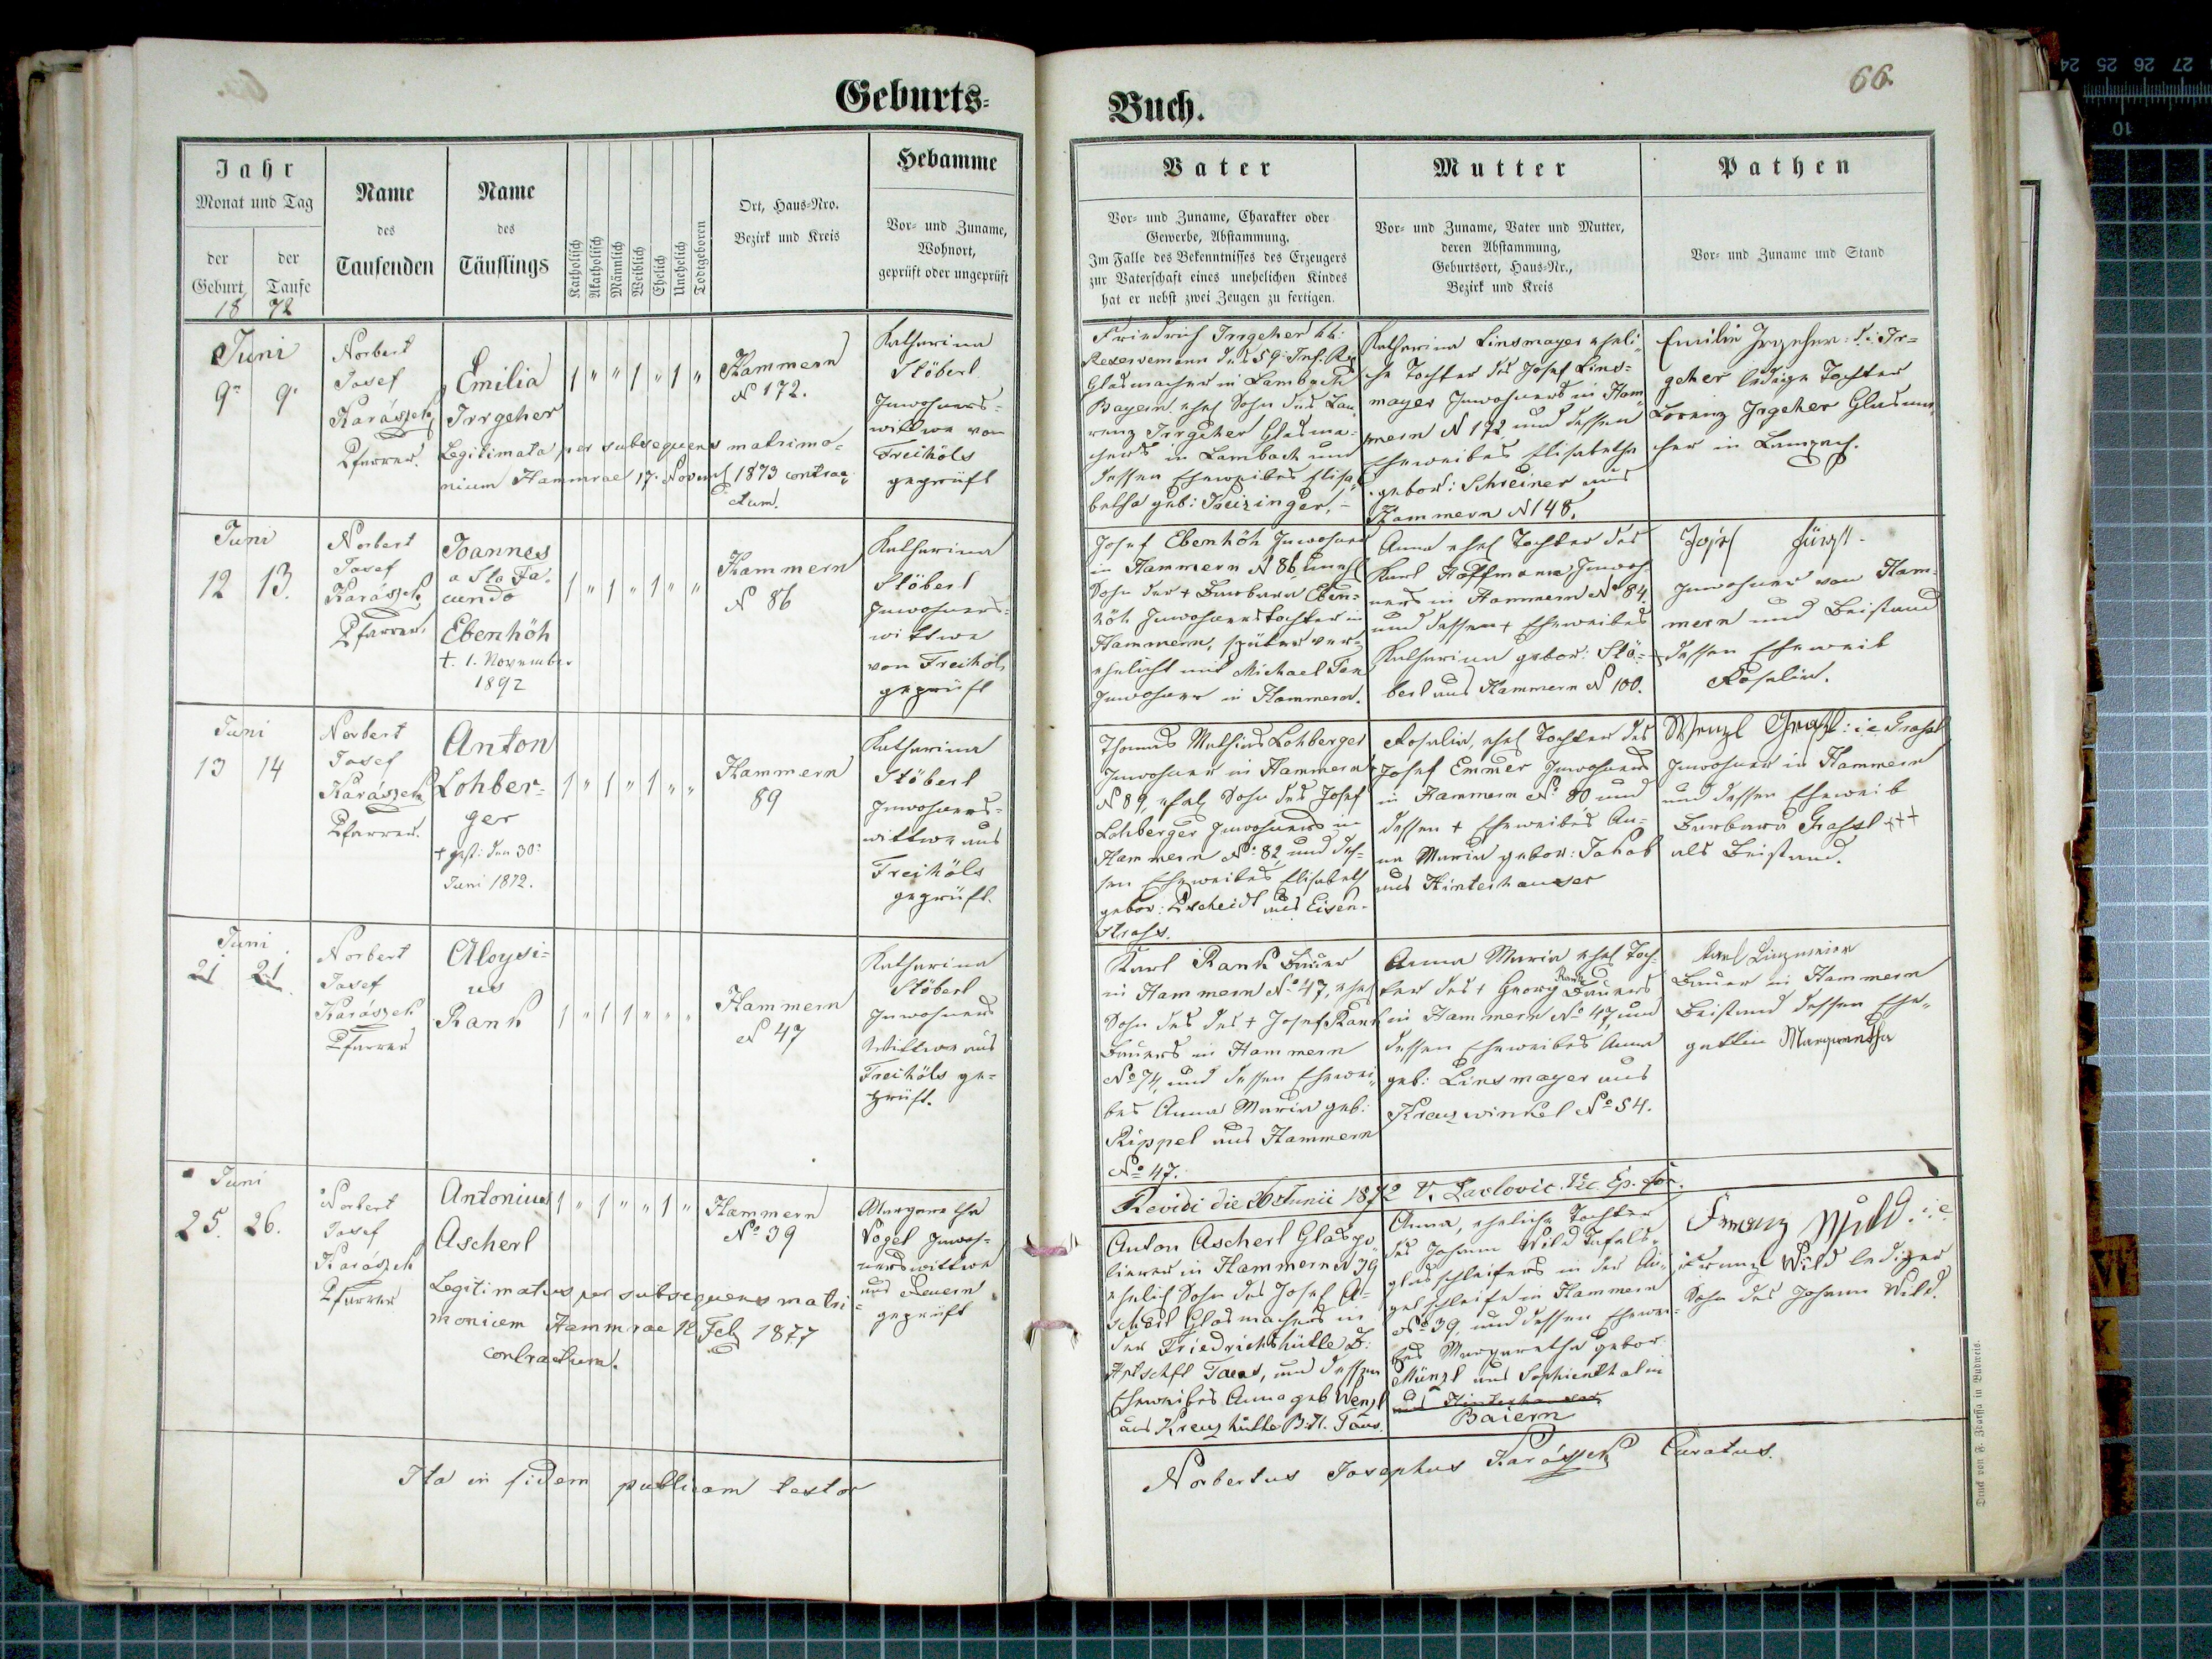 66.
Geburts-
Buch.
Jahr
Monat und Tag
der Geburt
der Taufe
18 72
Name
des
Taufenden
Name
des
Täuflings
Katholisch
Akatholisch
Männlich
Weiblich
Ehelich
Unehelich
Todtgeboren
Ort, Haus-Nro.
Bezirk und Kreis
Hebamme
Vor- und Zuname,
Wohnort,
geprüft oder ungeprüft
Vater
Vor- und Zuname, Charakter oder
Gewerbe, Abstammung.
Im Falle des Bekenntnisses des Erzeugers
zur Vaterschaft eines unehelichen Kindes
hat er nebst zwei Zeugen zu fertigen.
Mutter
Vor- und Zuname, Vater und Mutter,
deren Abstammung,
Geburtsort, Haus-Nr.,
Bezirk und Kreis
Pathen
Vor- und Zuname und Stand
Juni
9. 9.
Norbert
Josef
Karászek
Pfarrer.
Emilia
Irrgeher
1 " " 1 " 1 "
Legitimata per subsequens matrimo-
nium Hammrae 17. Novemb 1873 contra-
ctum.
Hammern
N 172.
Katharina
Stöberl
Inwohners-
wittwe von
Freihöls
geprüft
Friedrich Irrgeher kk:
Reservemann des 59. Inf. Rg
Glasmacher in Lambach
Bayern, ehel Sohn des Lau-
renz Irrgeher Glasma-
chers in Lambach und
dessen Eheweibes Elisa-
betha geb: Kreizinger.
Katharina Linsmayer eheli-
che Tochter des Josef Lins-
mayer Inwohners in Ham-
mern N 172 und dessen
Eheweibes Elisabetha
gebor: Schreiner aus
Hammern N 148.
Emilie Irgeher: i. Ir-
geher ledige Tochter
Lorenz Irgeher Glasma-
cher in Lampach.
Juni
12 13.
Norbert
Josef
Karászek
Pfarrer.
Joannes
a Sto Fa-
cundo
Ebenhöh
†. 1. November
1892
1 " 1 " 1 " "
Hammern
N 86
Katharina
Stöberl
Inwohners-
wittwe
von Freihöls
geprüft
Josef Ebenhöh Inwohner
in Hammern N 86, unehl
Sohn der + Barbara Eben-
höh Inwohnerstochter in
Hammern, später ver-
ehelicht mit Michael
Inwohner in Hammern.
Anna ehel Tochter des
Karl Hoffmann Inwoh-
ners in Hammern No 84.
und dessen + Eheweibes
Katharina gebor: Stö-
berl aus Hammern N 100.
Josef Fürst
Inwohner von Ham-
mern und Beistand
dessen Eheweib
Rosalia.
Juni
13 14
Norbert
Josef
Karászek
Pfarrer.
Anton
Lohber-
ger
+ gest: den 30.
Juni 1872.
1 " 1 " 1 " "
Hammern
89
Katharina
Stöberl
Inwohners-
wittwe aus
Freihöls
geprüft.
Thomas Mathias Lohberger
Inwohner in Hammern
N 89, ehel Sohn des Josef
Lohberger Inwohners in
Hammern No: 82, und des-
sen Eheweibes Elisabeth
gebor: Pscheidl aus Eisen-
strass.
Rosalia, ehel Tochter des
Josef Emmer Inwohners
in Hammern No. 80 und
dessen + Eheweibes An-
na Maria gebor: Jakob
aus Hinterhauser
Wenzl Graßl: i.e Grassl
Inwohner in Hammern
und dessen Eheweib
Barbara Grassl +++
als Beistand.
Juni
21 21.
Norbert
Josef
Karászek
Pfarrer
Aloysi-
us
Rank
1 " 1 1 " " "
Hammern
N 47
Katharina
Stöberl
Inwohners
Wittwe aus
Freihöls ge-
prüft.
Karl Rank Bauer
in Hammern No 47, ehel
Sohn des des + Josef Rank
Bauers in Hammern
No 74, und dessen Ehewei-
bes Anna Maria geb:
Rippel aus Hammern
No 47.
Anna Maria ehel Toch-
ter des + Georg Rank Bauers
in Hammern No 47, und
dessen Eheweibes Anna
geb: Linsmayer aus
Kreuzwinkel No 54.
Karl Linzmeier
Bauer in Hammern
Beistand dessen Ehe-
gattin Margaretha
Revidi die 26 Junii 1872 V. Pavlovic. Vic. Ep. for.
Juni
25. 26.
Norbert
Josef
Karászek
Pfarrer
Antonius
Ascherl
1 " 1 " " 1 "
Legitimatus per subsequens matri-
monium Hammrae 12 Feb 1877
contractum.
Hammern
No 39
Margaretha
Vogel Inwoh-
nerswittwe
aus Neuern
geprüft
Anton Ascherl Glaspo-
lierer in Hammern N 39
ehelich Sohn des Josef A-
scherl Glasmachers in
der Friedrichshütte B:
Htschft Taus, und dessen
Eheweibes Anna geb Wenzl
aus Kreuzhütte B:H. Taus.
Anna, eheliche Tochter
des Johann Wild Tafel-
glasschleifers in der
schleife in Hammern
No 39, und dessen Ehewei-
bes Margaretha gebor
Münzl aus Sophienthal in
aus Hinterhauser
Baiern
Franz Wild i.e
Franz Wild lediger
Sohn des Johann Wild.
Ita in fidem publicam testor
Norbertus Josephus Karászek Curatus.
Druck von F. Zdarssa in Budweis.